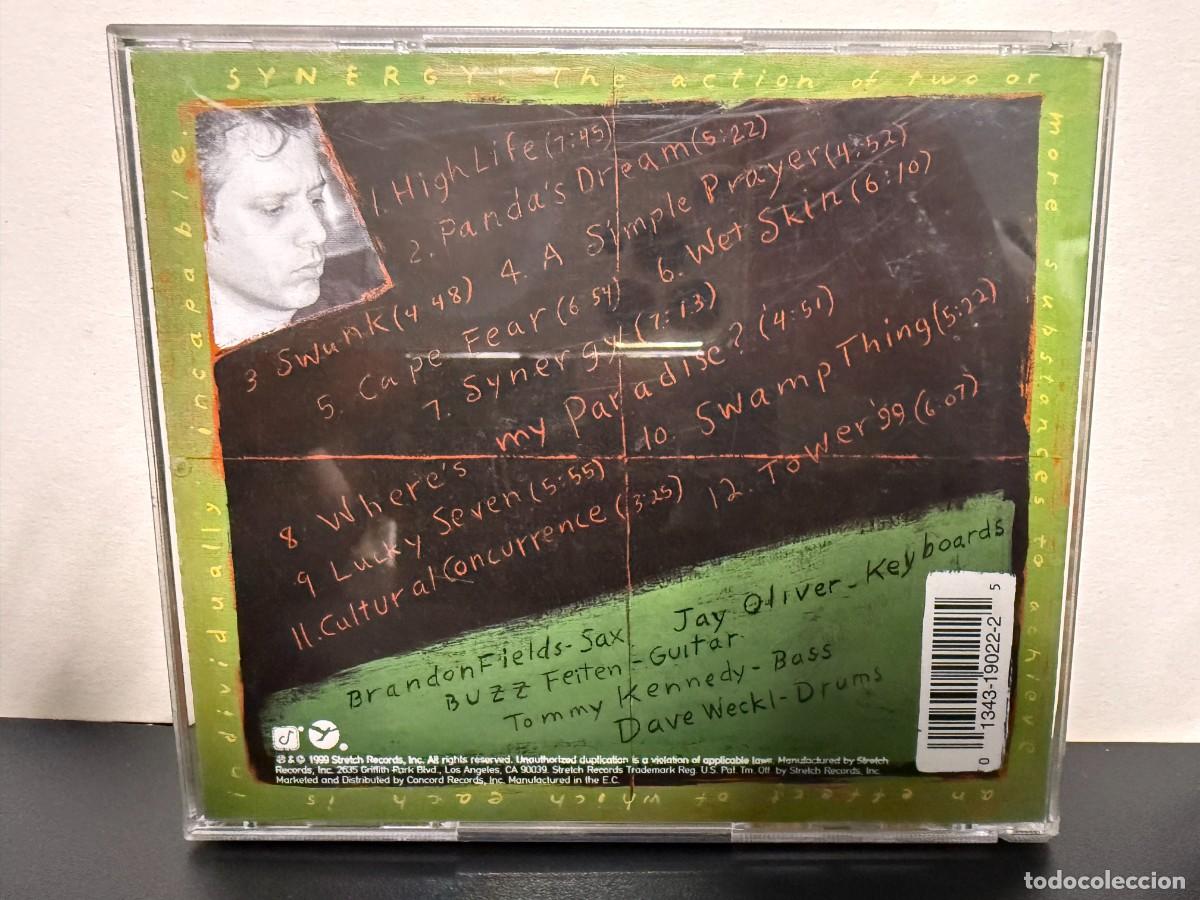 SYNERGY: The action of two or
more substances to achieve
an effect of which each is
individually incapable.
1. High Life (7:45)
2. Panda's Dream (5:22)
3 Swunk (4 48)
4. A Simple Prayer (4:52)
5. Cape Fear (6 54)
6. Wet Skin (6:10)
7. Synergy (7:13)
8 Where's my Paradise? (4:51)
9 Lucky Seven (5:55)
10. Swamp Thing (5:22)
11. Cultural Concurrence (3:25)
12. Tower '99 (6:07)
Brandon Fields - Sax
Jay Oliver - Keyboards
BUZZ Feiten - Guitar
Tommy Kennedy - Bass
Dave Weckl - Drums
℗ & © 1999 Stretch Records, Inc. All rights reserved. Unauthorized duplication is a violation of applicable laws. Manufactured by Stretch
Records, Inc. 2635 Griffith Park Blvd., Los Angeles, CA 90039. Stretch Records Trademark Reg. U.S. Pat. Tm. Off. by Stretch Records, Inc.
Marketed and Distributed by Concord Records, Inc. Manufactured in the E.C.
0 1343-19022-2 5
todocoleccion